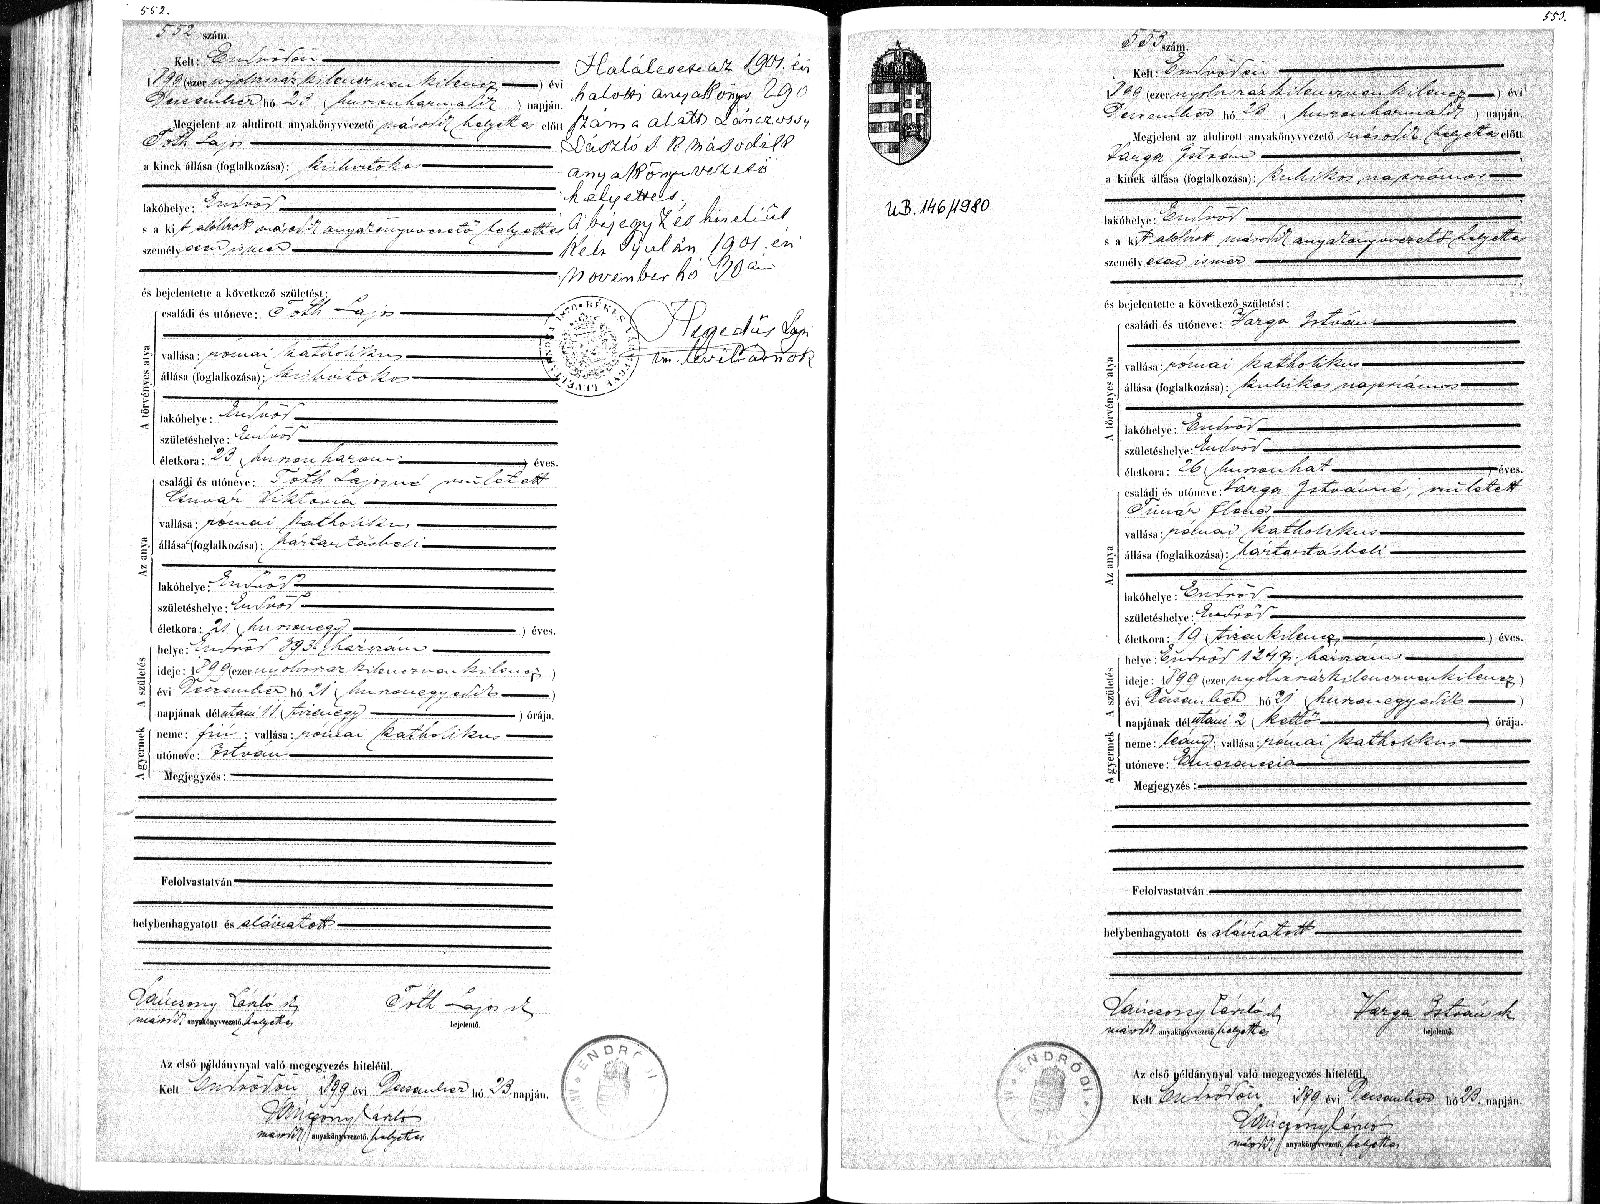 552.
552 szám.
Kelt: Endrődön
1899 (ezer nyolczszázkilenczvenkilencz) évi
December hó 23 (huszonharmadik) napján.
Megjelent az alulirott anyakönyvvezető második helyettes előtt
Tóth Lajos
a kinek állása (foglalkozása): kisbirtokos
lakóhelye: Endrőd
s a kit alulirott második anyakönyvvezető helyettes
személyesen ismer
és bejelentette a következő születést:
A törvényes atya
családi és utóneve: Tóth Lajos
vallása: római katholikus
állása (foglalkozása): kisbirtokos
lakóhelye: Endrőd
születéshelye: Endrőd
életkora: 23 (huszonhárom) éves.
Az anya
családi és utóneve: Tóth Lajosné született
Viktoria
vallása: római katholikus
állása (foglalkozása): háztartásbeli
lakóhelye: Endrőd
születéshelye: Endrőd
életkora: 21 (huszonegy) éves.
A születés
helye: Endrőd 893. házszám
ideje: 1899 (ezer nyolczszázkilenczvenkilencz)
évi December hó 21 (huszonegyedik)
napjának délutáni 11 (tizenegy) órája.
A gyermek
neme: fiú; vallása: római katholikus
utóneve: István
Megjegyzés:
Felolvastatván
helybenhagyatott és aláiratott
Lánczossy László sk
második anyakönyvvezető helyettes
Tóth Lajos sk
bejelentő.
Az első példánynyal való megegyezés hiteléül.
Kelt Endrődön 1899 évi December hó 23. napján.
Lánczossy László
második anyakönyvvezető helyettes
Halálesete az 1901. évi
halotti anyakönyv 290
száma alatt Lánczossy
László s. k. másodall
anyakönyvvezető
helyettes.
A bejegyzés hiteléül
Kelt Gyulán 1901. évi
november hó 30 án
Hegedűs Lajos
m. levéltárnok
ENDRŐDI
553.
553 szám.
Kelt: Endrődön
1899 (ezer nyolczszázkilenczvenkilencz) évi
December hó 23 (huszonharmadik) napján.
Megjelent az alulirott anyakönyvvezető második helyettes előtt
Varga István
a kinek állása (foglalkozása): kubikos napszámos
lakóhelye: Endrőd
s a kit alulirott második anyakönyvvezető helyettes
személyesen ismer
és bejelentette a következő születést:
A törvényes atya
családi és utóneve: Varga István
vallása: római katholikus
állása (foglalkozása): kubikos napszámos
lakóhelye: Endrőd
születéshelye: Endrőd
életkora: 26 (huszonhat) éves.
Az anya
családi és utóneve: Varga Istvánné, született
Timár Ilona
vallása: római katholikus
állása (foglalkozása): háztartásbeli
lakóhelye: Endrőd
születéshelye: Endrőd
életkora: 19 (tizenkilencz) éves.
A születés
helye: Endrőd 1247. házszám
ideje: 1899 (ezer nyolczszázkilenczvenkilencz)
évi December hó 21 (huszonegyedik)
napjának délutáni 2 (kettő) órája.
A gyermek
neme: leány; vallása: római katholikus
utóneve: Emerenczia
Megjegyzés:
Felolvastatván
helybenhagyatott és aláiratott
Lánczossy László sk
második anyakönyvvezető helyettes
Varga István sk
bejelentő.
Az első példánynyal való megegyezés hiteléül.
Kelt Endrődön 1899 évi December hó 23. napján.
Lánczossy László
második anyakönyvvezető helyettes
UB. 146/1980
ENDRŐDI